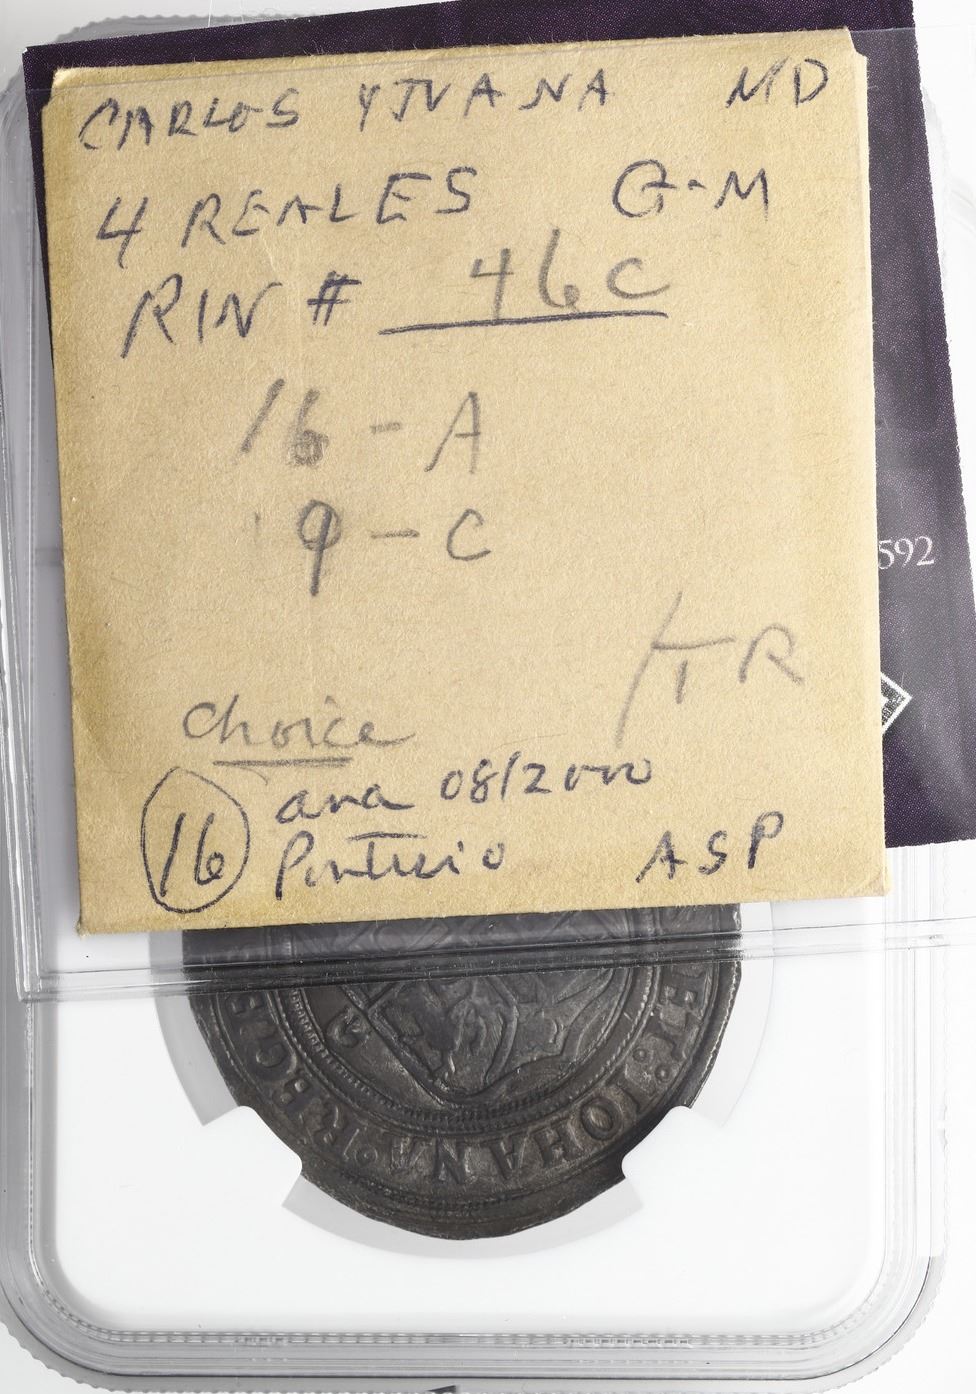 CARLOS YJUANA MD
4 REALES G-M
RIN # 46C
16 - A
9 - C
TR
choice
16 ana 08/2000
Ponterio ASP
592
REGE
IOHANA